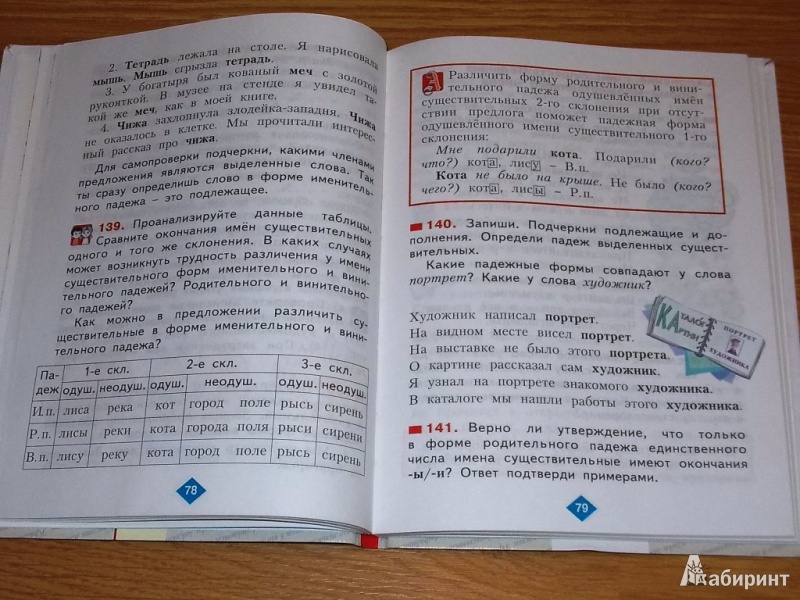 2. Тетрадь лежала на столе. Я нарисовала
мышь. Мышь сгрызла тетрадь.
3. У богатыря был кованый меч с золотой
рукояткой. В музее на стенде я увидел та-
кой же меч, как в моей книге.
4. Чижа захлопнула злодейка-западня. Чижа
не оказалось в клетке. Мы прочитали интерес-
ный рассказ про чижа.
Для самопроверки подчеркни, какими членами
предложения являются выделенные слова. Так
ты сразу определишь слово в форме именитель-
ного падежа – это подлежащее.
139. Проанализируйте данные таблицы.
Сравните окончания имён существительных
одного и того же склонения. В каких случаях
может возникнуть трудность различения у имени
существительного форм именительного и вини-
тельного падежей? Родительного и винительно-
го падежей?
Как можно в предложении различить су-
ществительные в форме именительного и вини-
тельного падежа?
Па-
деж 1-е скл. 2-е скл. 3-е скл.
одуш. неодуш. одуш. неодуш. одуш. неодуш.
И.п. лиса река кот город поле рысь сирень
Р.п. лисы реки кота города поля рыси сирени
В.п. лису реку кота город поле рысь сирень
78
Различить форму родительного и вини-
тельного падежа одушевлённых имён
существительных 2-го склонения при отсут-
ствии предлога поможет падежная форма
одушевлённого имени существительного 1-го
склонения:
Мне подарили кота. Подарили (кого?
что?) кота, лису – В.п.
Кота не было на крыше. Не было (кого?
чего?) кота, лисы – Р.п.
140. Запиши. Подчеркни подлежащие и до-
полнения. Определи падеж выделенных сущест-
вительных.
Какие падежные формы совпадают у слова
портрет? Какие у слова художник?
КАТАЛОГ
КАРТИН
ПОРТРЕТ
ХУДОЖНИКА
Художник написал портрет.
На видном месте висел портрет.
На выставке не было этого портрета.
О картине рассказал сам художник.
Я узнал на портрете знакомого художника.
В каталоге мы нашли работы этого художника.
141. Верно ли утверждение, что только
в форме родительного падежа единственного
числа имена существительные имеют окончания
-ы/-и? Ответ подтверди примерами.
79
Лабиринт